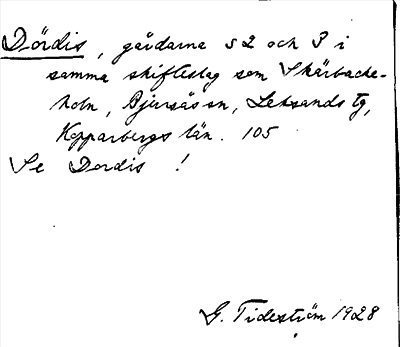 Dördis, gårdarna 52 och 3 i
samma skifteslag som Skärbacks-
holn, Bjursås sn, Leksands tg,
Kopparbergs län. 105
Se Dordis !
G. Tideström 1928